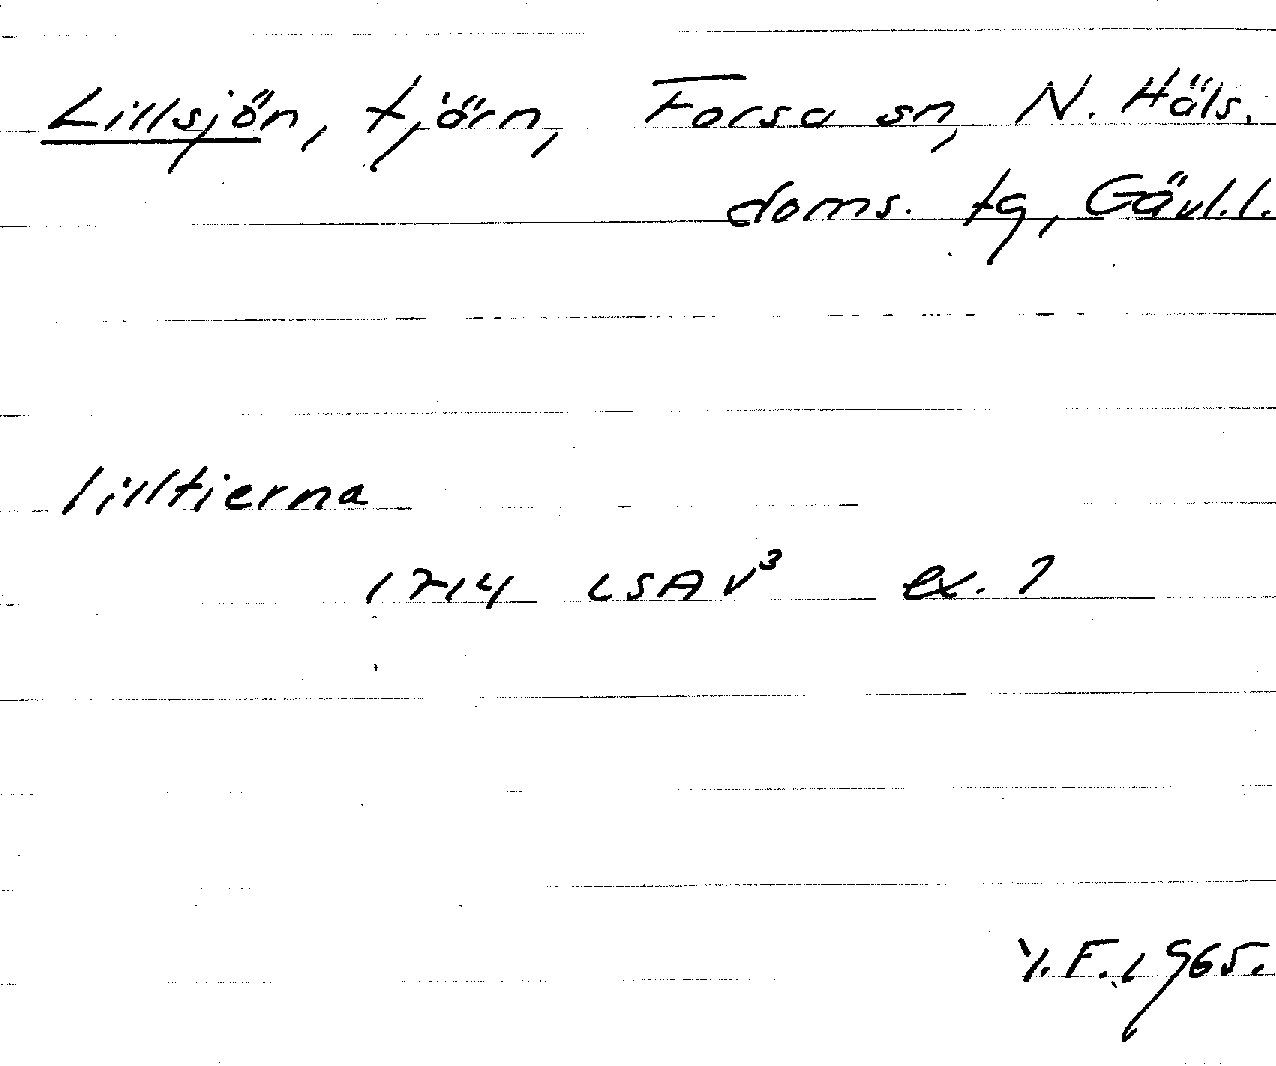 Lillsjön, tjörn, Forsa sn, N. Häls.
doms. tg, Gävl.l.
lilltierna
1714 LSA V³ ex. 1
Y.F. 1965.